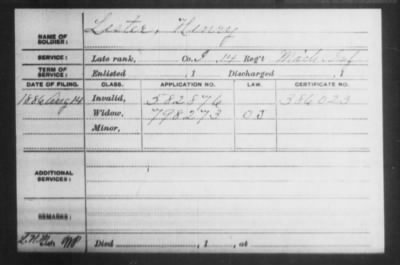 NAME OF SOLDIER: Lester, Henry
SERVICE: Late rank, Co. I 14 Reg't Mich. Inf
TERM OF SERVICE: Enlisted , 1 Discharged , 1
DATE OF FILING. CLASS. APPLICATION NO. LAW. CERTIFICATE NO.
1886 Aug 14 Invalid, 582876 386023
Widow, 798273 03
Minor,
ADDITIONAL SERVICES:
REMARKS:
Died , 1 , at